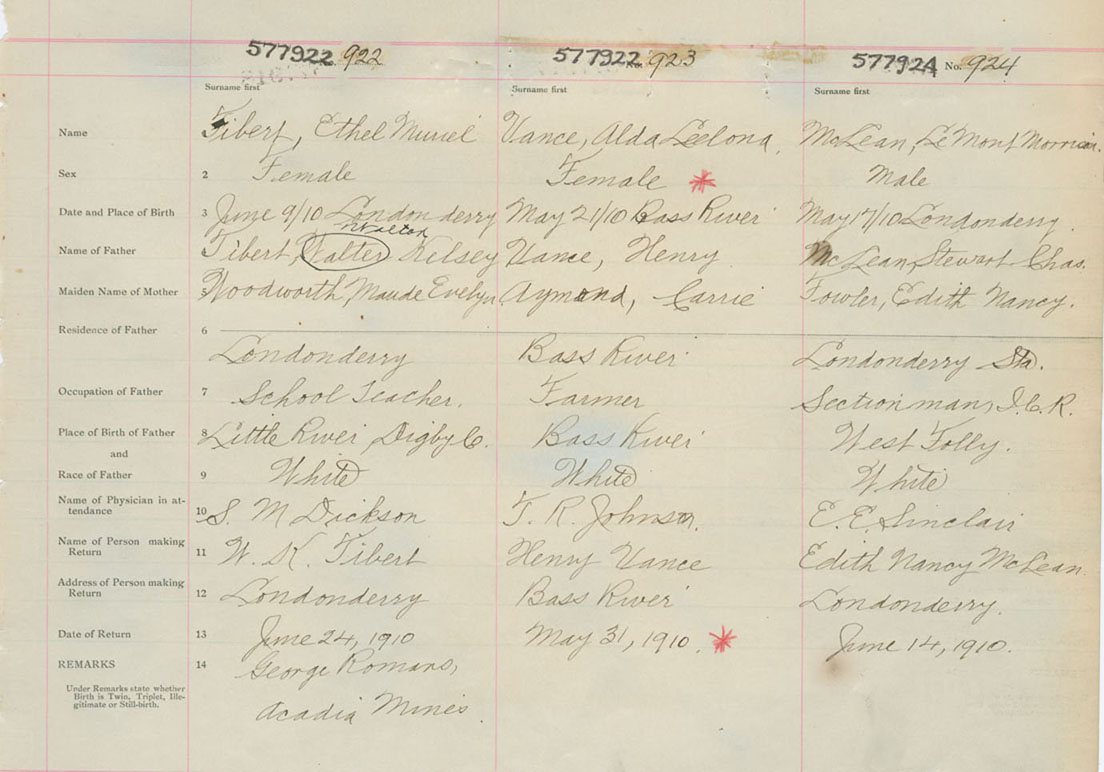 577922 922 577922 No. 923 577924 No. 924
Surname first Surname first Surname first
Name Tibert, Ethel Muriel Vance, Alda Leelona McLean, Le Mont
Sex 2 Female Female Male
Date and Place of Birth 3 June 9/10 Londonderry May 21/10 Bass River May 17/10 Londonderry
Walton
Name of Father 4 Tibert, Walter Kelsey Vance, Henry McLean, Stewart Chas.
Maiden Name of Mother 5 Woodworth, Maude Evelyn Aymond, Carrie Fowler, Edith Nancy.
Residence of Father 6
Londonderry Bass River Londonderry Sta.
Occupation of Father 7 School Teacher. Farmer Section man, I.C.R.
Place of Birth of Father 8 Little River, Digby Co. Bass River West Folly.
and
Race of Father 9 White White White
Name of Physician in at-
tendance 10 S. M Dickson T. R. Johnson. E. E. Sinclair
Name of Person making
Return 11 W. K. Tibert Henry Vance Edith Nancy McLean
Address of Person making
Return 12 Londonderry Bass River Londonderry.
Date of Return 13 June 24, 1910 May 31, 1910. June 14, 1910.
REMARKS 14 George Romans,
Under Remarks state whether
Birth is Twin, Triplet, Ille-
gitimate or Still-birth.
Acadia Mines.